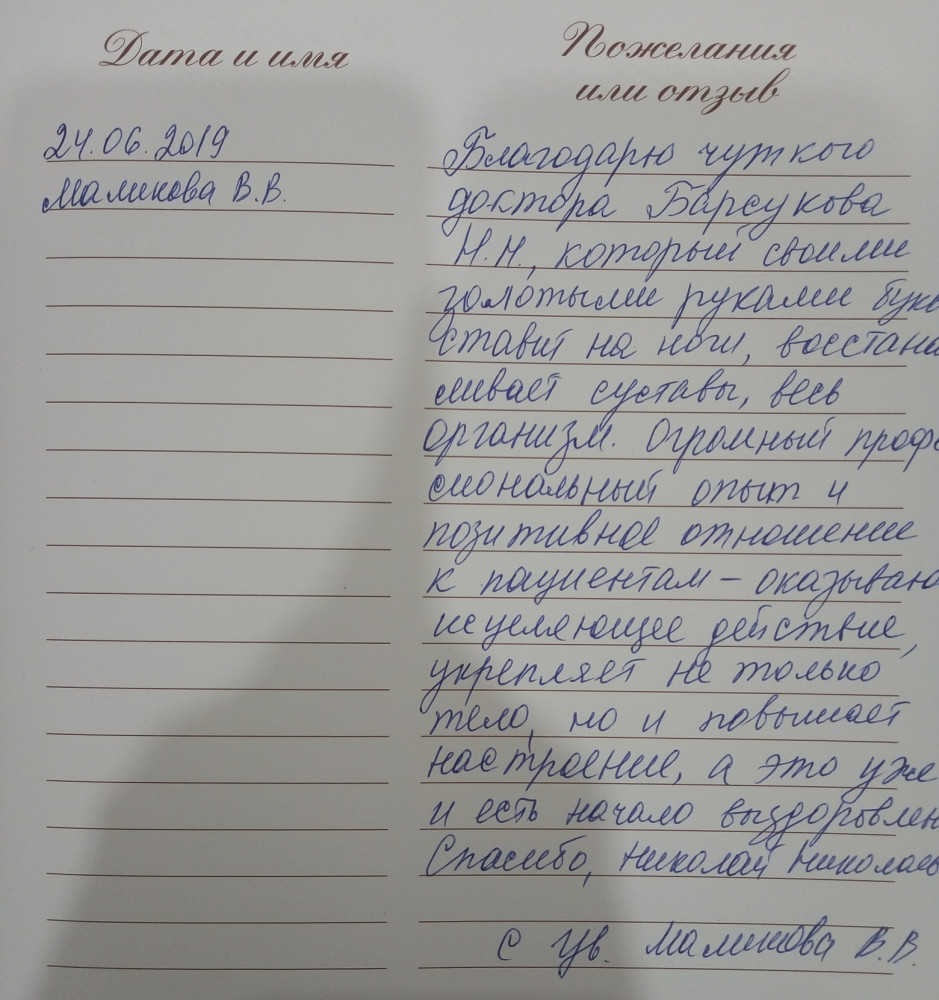 Дата и имя
Пожелания
или отзыв
24.06.2019
Маликова В.В.
Благодарю чуткого
доктора Барсукова
Н.Н., который своими
золотыми руками букв
ставит на ноги, восстана
ливает суставы, весь
организм. Огромный профе
сиональный опыт и
позитивное отношение
к пациентам – оказываю
исцеляющее действие,
укрепляет не только
тело, но и повышает
настроение, а это уже
и есть начало выздоровлен
Спасибо, Николай Николаев
С Ув. Маликова В.В.